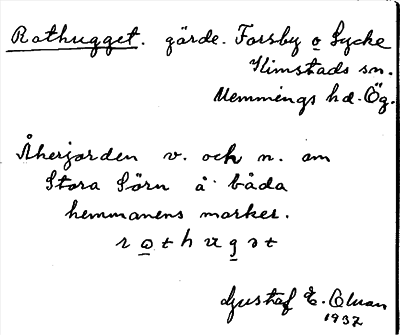 Rothugget. gärde. Forsby o Lycke
Kimstads sn.
Memmings hd. Ög.
Åkerjorden v. och n. om
Stora Sörn å båda
hemmanens marker.
Gustaf E.
1937